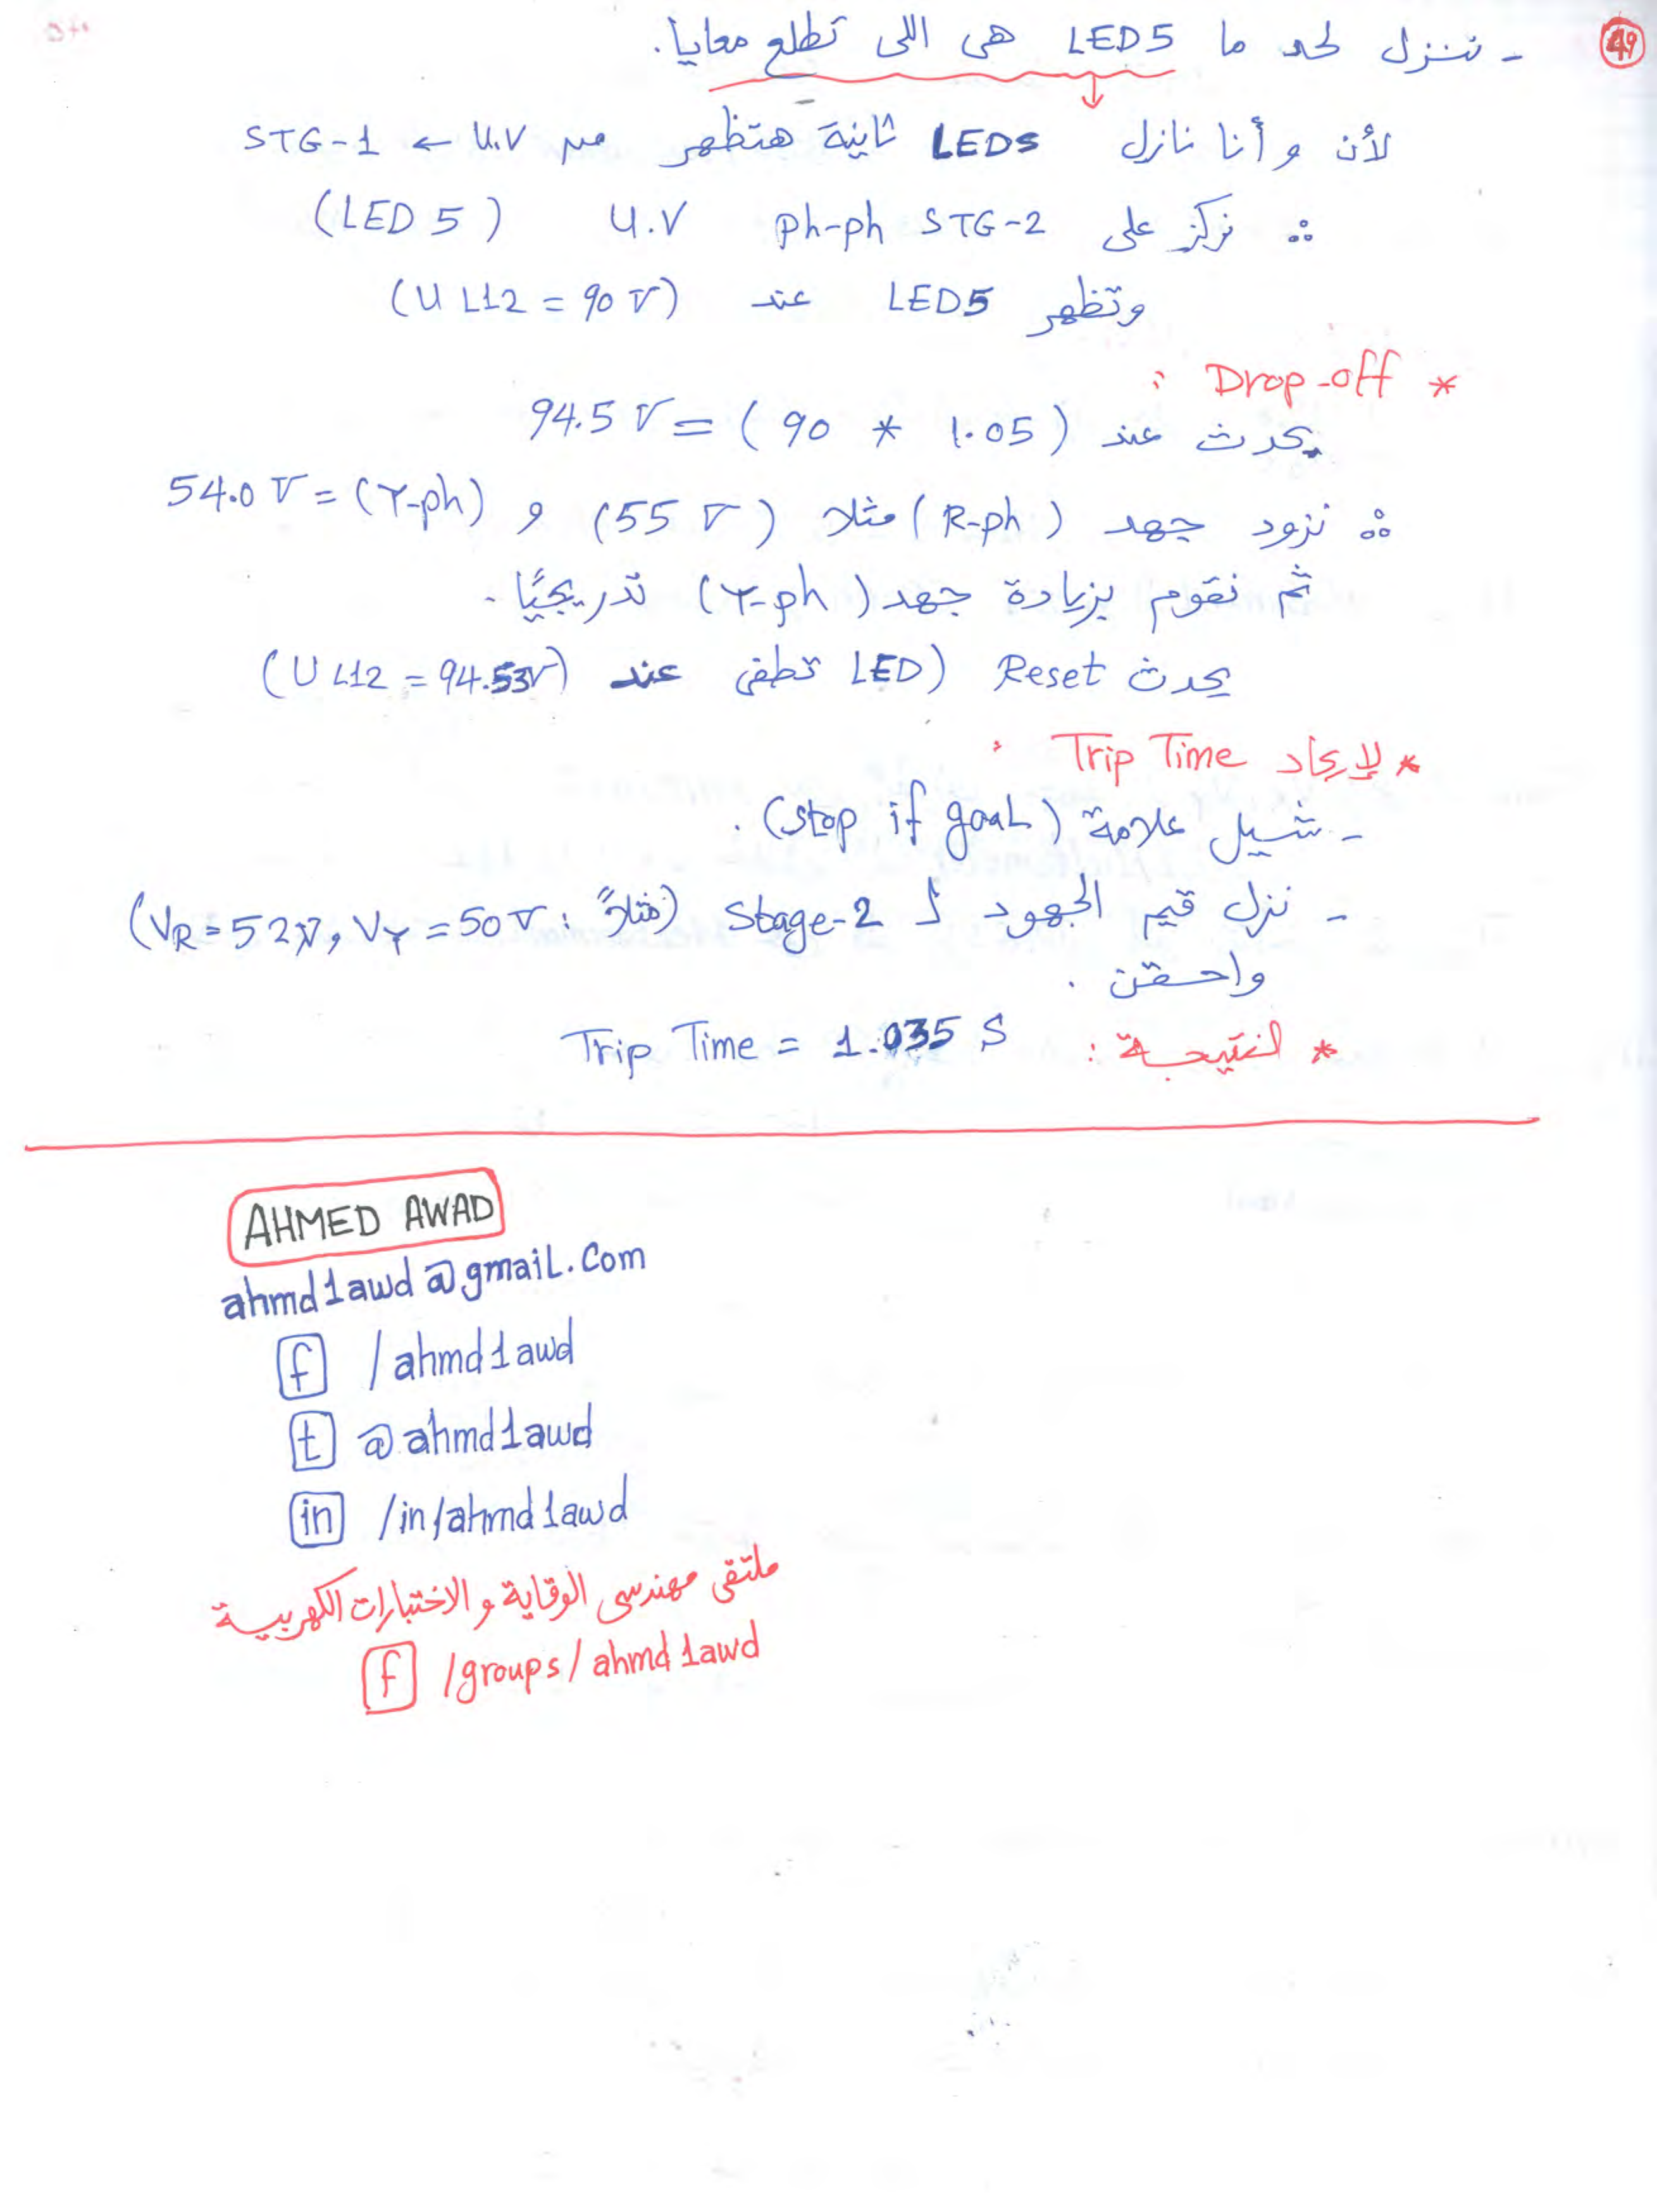 49
- ننزل لحد ما LED5 هى اللى تطلع معايا.
لأن و أنا نازل LEDs ثانية هتظهر من U.V ← STG-1
∴ نركز على U.V ph-ph STG-2 (LED 5)
وتظهر LED5 عند (U L12 = 90 V)
* Drop-off :
يحدث عند (90 * 1.05) = 94.5 V
∴ نزود جهد (R-ph) مثلا (55 V) و (Y-ph) = 54.0 V
ثم نقوم بزيادة جهد (Y-ph) تدريجيًا.
يحدث Reset (LED تطفى عند (U L12 = 94.53V
* لإيجاد Trip Time :
- شيل علامة (stop if goal).
- نزل قيم الجهود لـ Stage-2 (مثلاً: VR=52V, VY=50V)
واحقن.
* النتيجة : Trip Time = 1.035 S
AHMED AWAD
ahmd1awd@gmail.com
f /ahmd1awd
t @ahmd1awd
in /in/ahmd1awd
ملتقى مهندسى الوقاية و الاختبارات الكهربية
f /groups/ahmd1awd